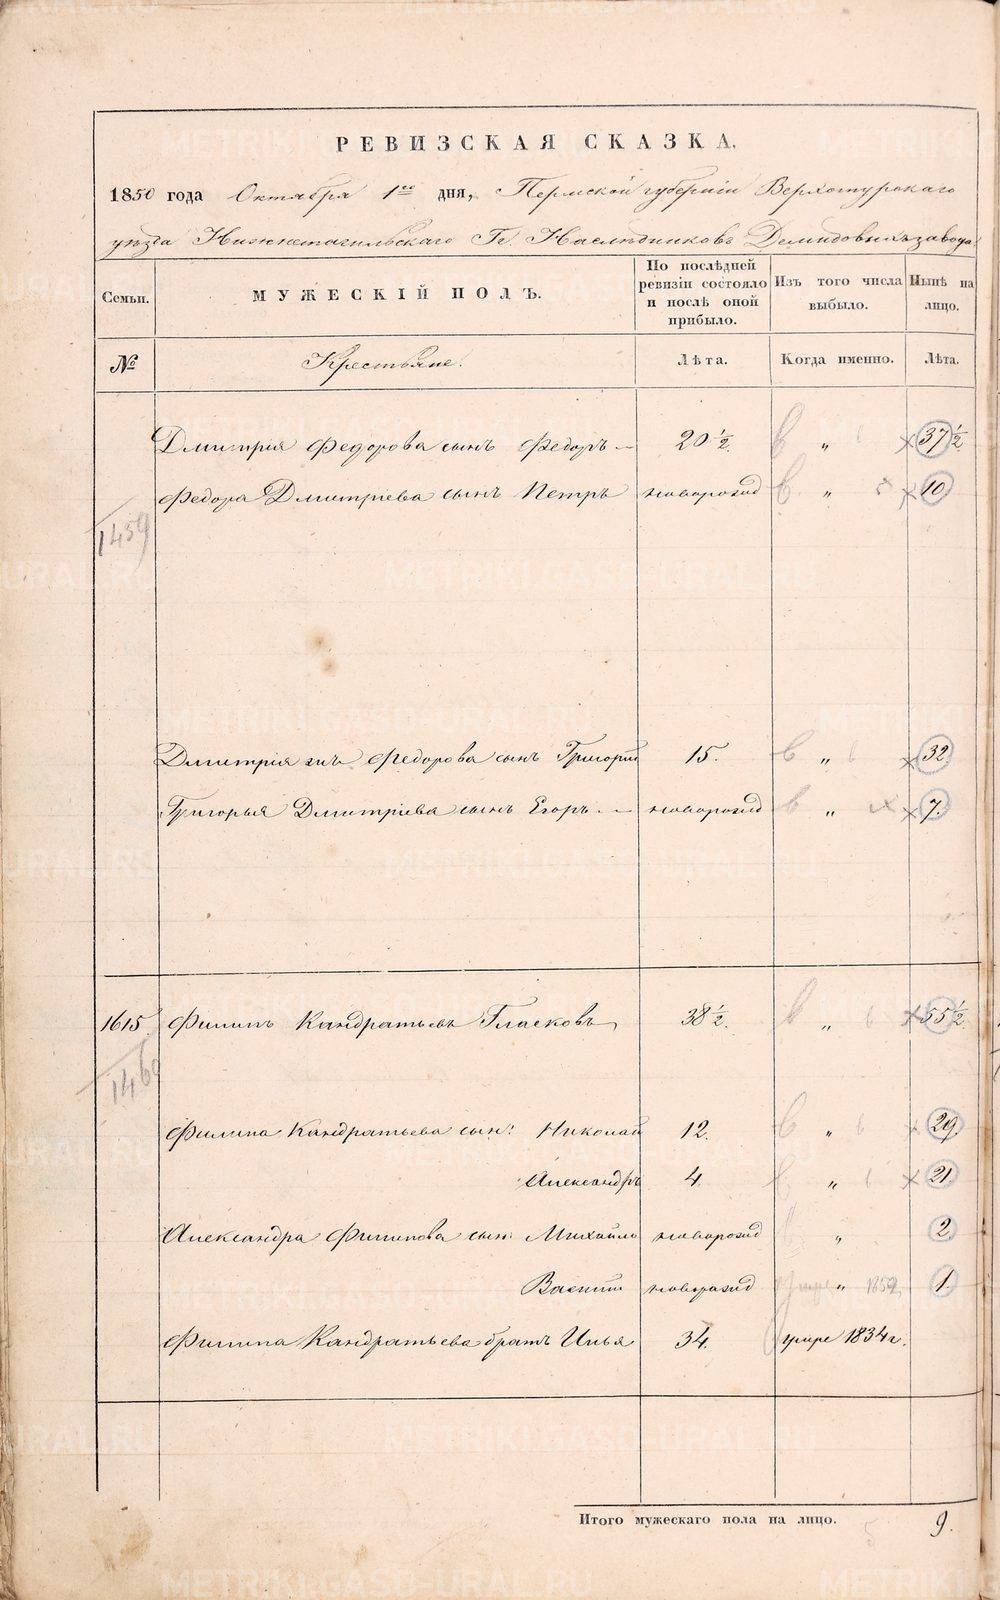 РЕВИЗСКАЯ СКАЗКА.
1850 года Октября 1го дня, Пермской губерніи Верхотурскаго
уѣзда Нижнетагильскаго Гг. Наслѣдниковъ Демидовыхъ завода
Семьи. МУЖЕСКІЙ ПОЛЪ. По послѣдней ревизіи состояло и послѣ оной прибыло. Изъ того числа выбыло. Нынѣ на лицо.
№ Крестьяне. Лѣта. Когда именно. Лѣта.
Дмитрія Федорова сынъ Федоръ — 20 ½ „ 37 ½
Федора Дмитріева сынъ Петръ новорожд „ 10
1459
Дмитрія Федорова сынъ Григорій 15. „ 32
Григорья Дмитріева сынъ Егоръ — новорожд „ 7.
1615 Филипъ Кандратьевъ Гласковъ 38 ½. „ 55 ½
1460
Филипа Кандратьева сын: Николай 12. „ 29
Александръ 4 „ 21
Александра Филипова сын: Михайло новорожд „ 2
Василій новорожд умре „ 1852 1.
Филипа Кандратьева братъ Илья 34. умре 1834 г.
Итого мужескаго пола на лицо. 9.
METRIKI.GASO-URAL.RU